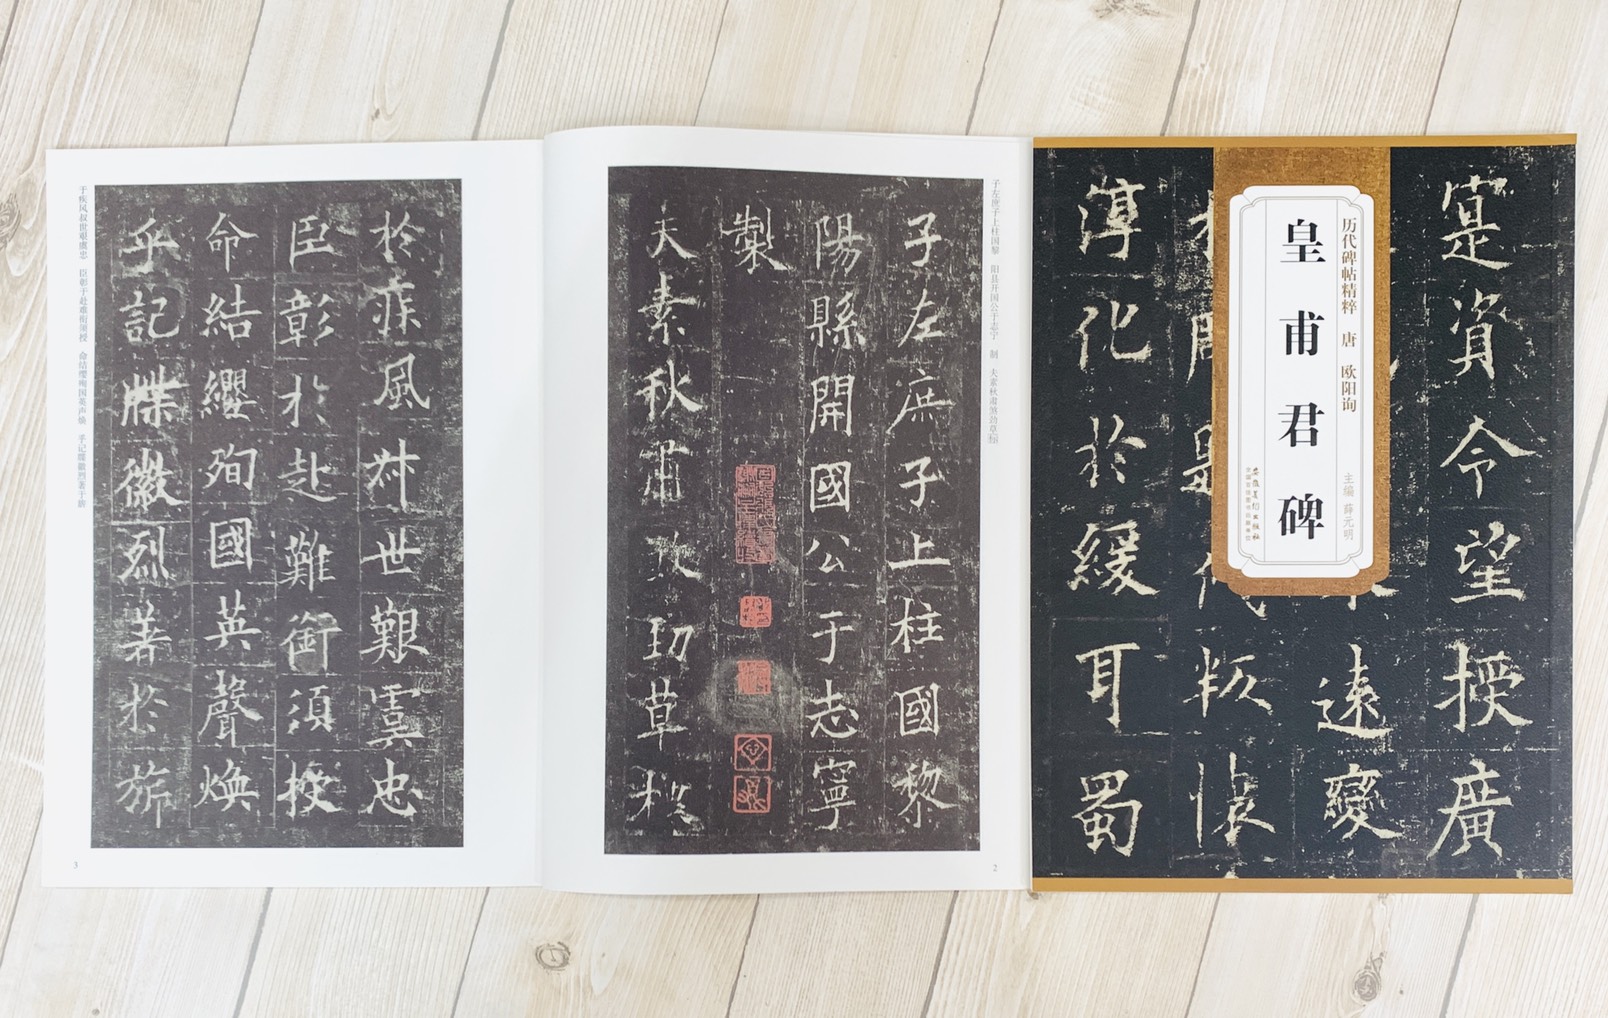 历代碑帖精粹 唐 欧阳询
皇甫君碑
主编 薛元明
安徽美术出版社
寔資令望授廣
遠變
叛懷
淳化於緩耳蜀
子左庶子上柱国黎 阳县开国公于志宁 制 夫素秋肃煞劲草
子左庶子上柱國黎
陽縣開國公于志寧
製
夫素秋肅煞勁草標
2
於疾風叔世艱虞忠
臣彰於赴難銜須授
命結纓殉國英聲煥
乎記牒徽烈著於旂
于疾风叔世艰虞忠 臣彰于赴难衔须授 命结缨殉国英声焕 乎记牒徽烈著于旂
3